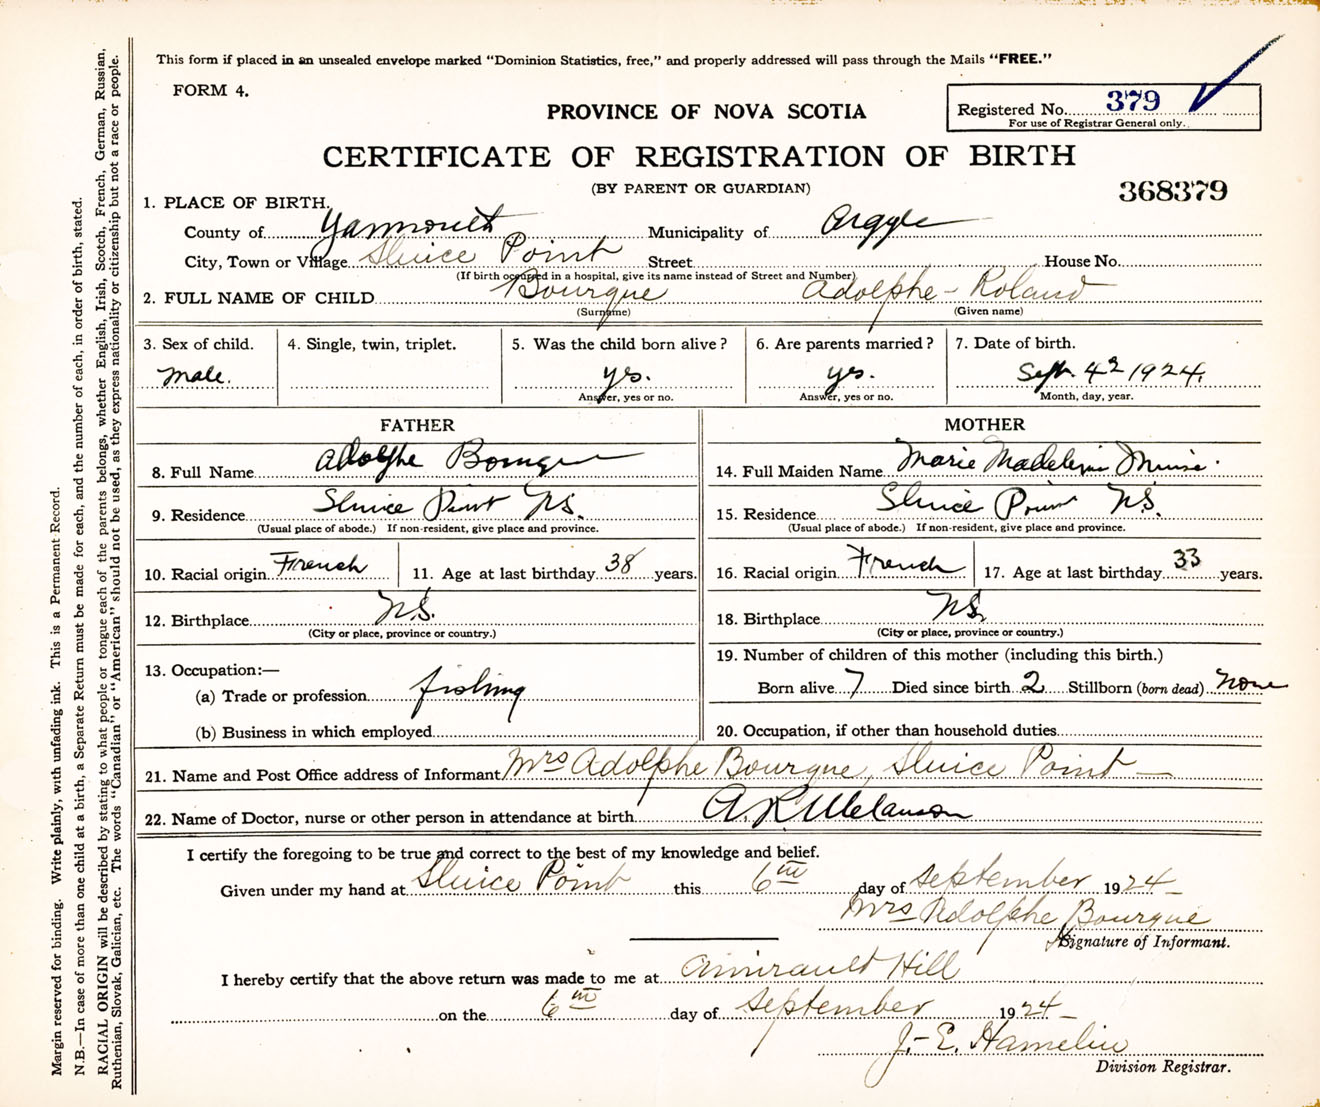 This form if placed in an unsealed envelope marked "Dominion Statistics, free," and properly addressed will pass through the Mails "FREE."
FORM 4.
PROVINCE OF NOVA SCOTIA
Registered No. 379
For use of Registrar General only.
CERTIFICATE OF REGISTRATION OF BIRTH
(BY PARENT OR GUARDIAN)
368379
1. PLACE OF BIRTH.
County of Yarmouth Municipality of Argyle
City, Town or Village Sluice Point Street House No.
(If birth occurred in a hospital, give its name instead of Street and Number)
2. FULL NAME OF CHILD Bourque Adolphe - Roland
(Surname) (Given name)
3. Sex of child. 4. Single, twin, triplet. 5. Was the child born alive? 6. Are parents married? 7. Date of birth.
Male. yes. yes. Sept. 4th 1924.
Answer, yes or no. Answer, yes or no. Month, day, year.
FATHER MOTHER
8. Full Name Adolphe Bourque 14. Full Maiden Name Marie Madeleine Muise.
9. Residence Sluice Point N.S. 15. Residence Sluice Point N.S.
(Usual place of abode.) If non-resident, give place and province. (Usual place of abode.) If non-resident, give place and province.
10. Racial origin French 11. Age at last birthday 38 years. 16. Racial origin French 17. Age at last birthday 33 years.
12. Birthplace N.S. 18. Birthplace N.S.
(City or place, province or country.) (City or place, province or country.)
13. Occupation:—
(a) Trade or profession fishing
(b) Business in which employed
19. Number of children of this mother (including this birth.)
Born alive 7 Died since birth 2 Stillborn (born dead) none
20. Occupation, if other than household duties
21. Name and Post Office address of Informant Mrs Adolphe Bourque, Sluice Point —
22. Name of Doctor, nurse or other person in attendance at birth A. R. Melanson
I certify the foregoing to be true and correct to the best of my knowledge and belief.
Given under my hand at Sluice Point this 6th day of September 1924
Mrs Adolphe Bourque
Signature of Informant.
I hereby certify that the above return was made to me at Amirault Hill
on the 6th day of September 1924
J.-E. Hamelin
Division Registrar.
Margin reserved for binding. Write plainly, with unfading ink. This is a Permanent Record.
N.B.—In case of more than one child at a birth, a Separate Return must be made for each, and the number of each, in order of birth, stated.
RACIAL ORIGIN will be described by stating to what people or tongue each of the parents belongs, whether English, Irish, Scotch, French, German, Russian,
Ruthenian, Slovak, Galician, etc. The words "Canadian" or "American" should not be used, as they express nationality or citizenship but not a race or people.